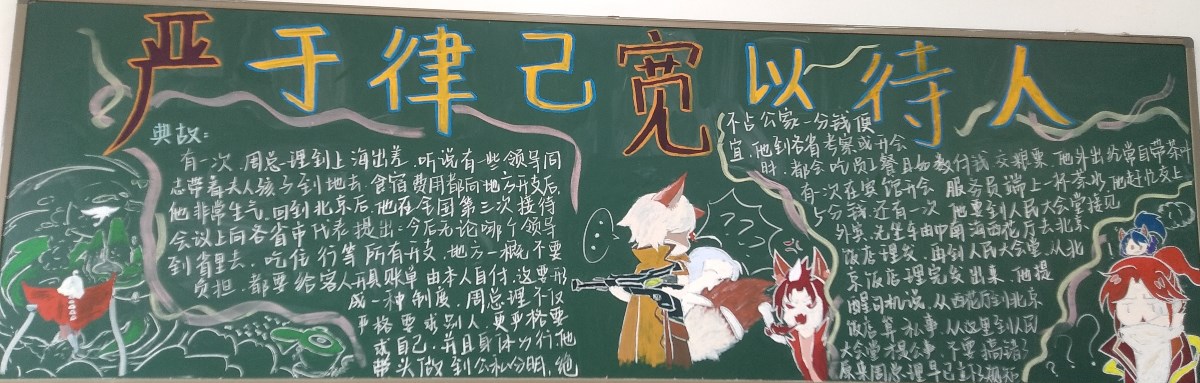 严于律己宽以待人
典故:
有一次,周总理到上海出差,听说有些领导同
志带着大人孩子到地去,食宿费用都向地方开支后,
他非常生气,回到北京后,他在全国第三次接待
会议上向各省市代表提出:今后无论哪个领导
到省里去,吃住行等所有开支,地方一概不要
负担,都要给客人开具账单由本人自付,这要形
成一种制度,周总理不仅
严格要求别人,更严格要
求自己,并且身体力行,他
带头做到公私分明,绝
不占公家一分钱便
宜,他到各省考察或开会
时,都会吃员工餐且如数付钱交粮票,他外出经常自带茶叶
有一次在宾馆开会,服务员端上一杯茶水,他赶忙交上
5分钱,还有一次,他要到人民大会堂接见
外宾,先坐车由中南海西花厅去北京
饭店理发,再到人民大会堂,从北
京饭店理完发出来,他提
醒司机说,从西花厅到北京
饭店算私事,从这里到人民
大会堂才是公事,不要搞错了
原来周总理早已立了规矩